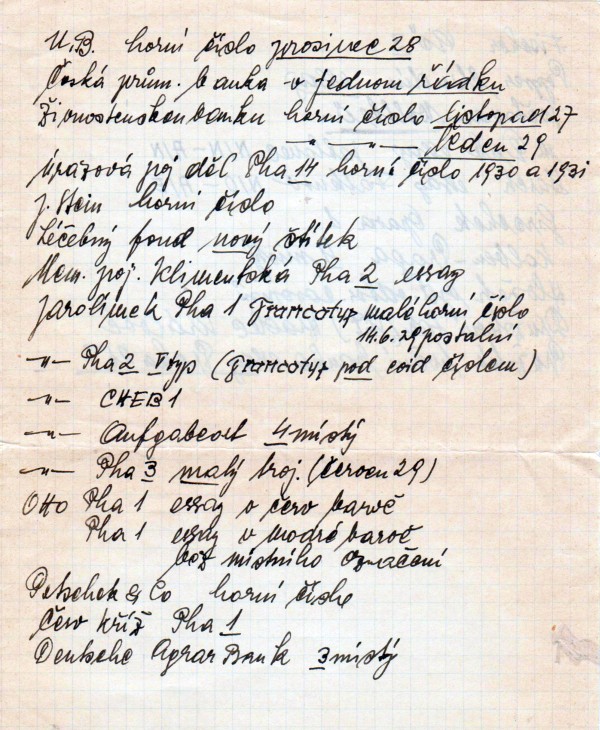 U.B. horní číslo prosinec 28
Česká prům. banka v jednom řádku
Živnostenskou banku horní číslo listopad 27
—„— —„— leden 29
Úrazová poj děl Pha 14 horní číslo 1930 a 1931
J. Stein horní číslo
Léčebný fond nový štítek
Nem. poj. Klimentská Pha 2 essay
Jarolímek Pha 1 Francotyp malé horní číslo
14.6.29 postalní
—„— Pha 2 V typ (Francotyp pod evid číslem)
—„— CHEB 1
—„— Aufgabeort 4 místý
—„— Pha 3 malý troj. (Červen 29)
Otto Pha 1 essay v červ barvě
Pha 1 essay v modré barvě
bez místního označení
Petschek & Co horní číslo
Červ kříž Pha 1
Deutsche Agrar Bank 3 místý